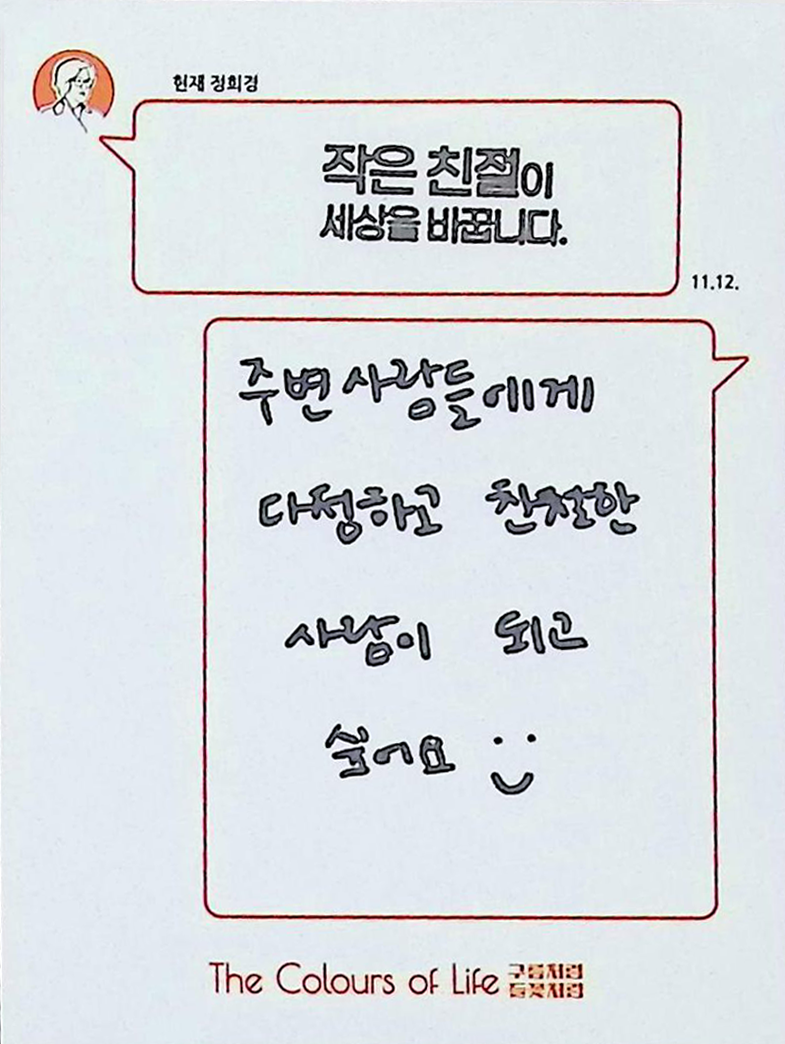 현재 정희경
작은 친절이
세상을 바꿉니다.
11.12.
주변 사람들에게
다정하고 친절한
사람이 되고
싶어요
The Colours of Life 구름처럼
들꽃처럼